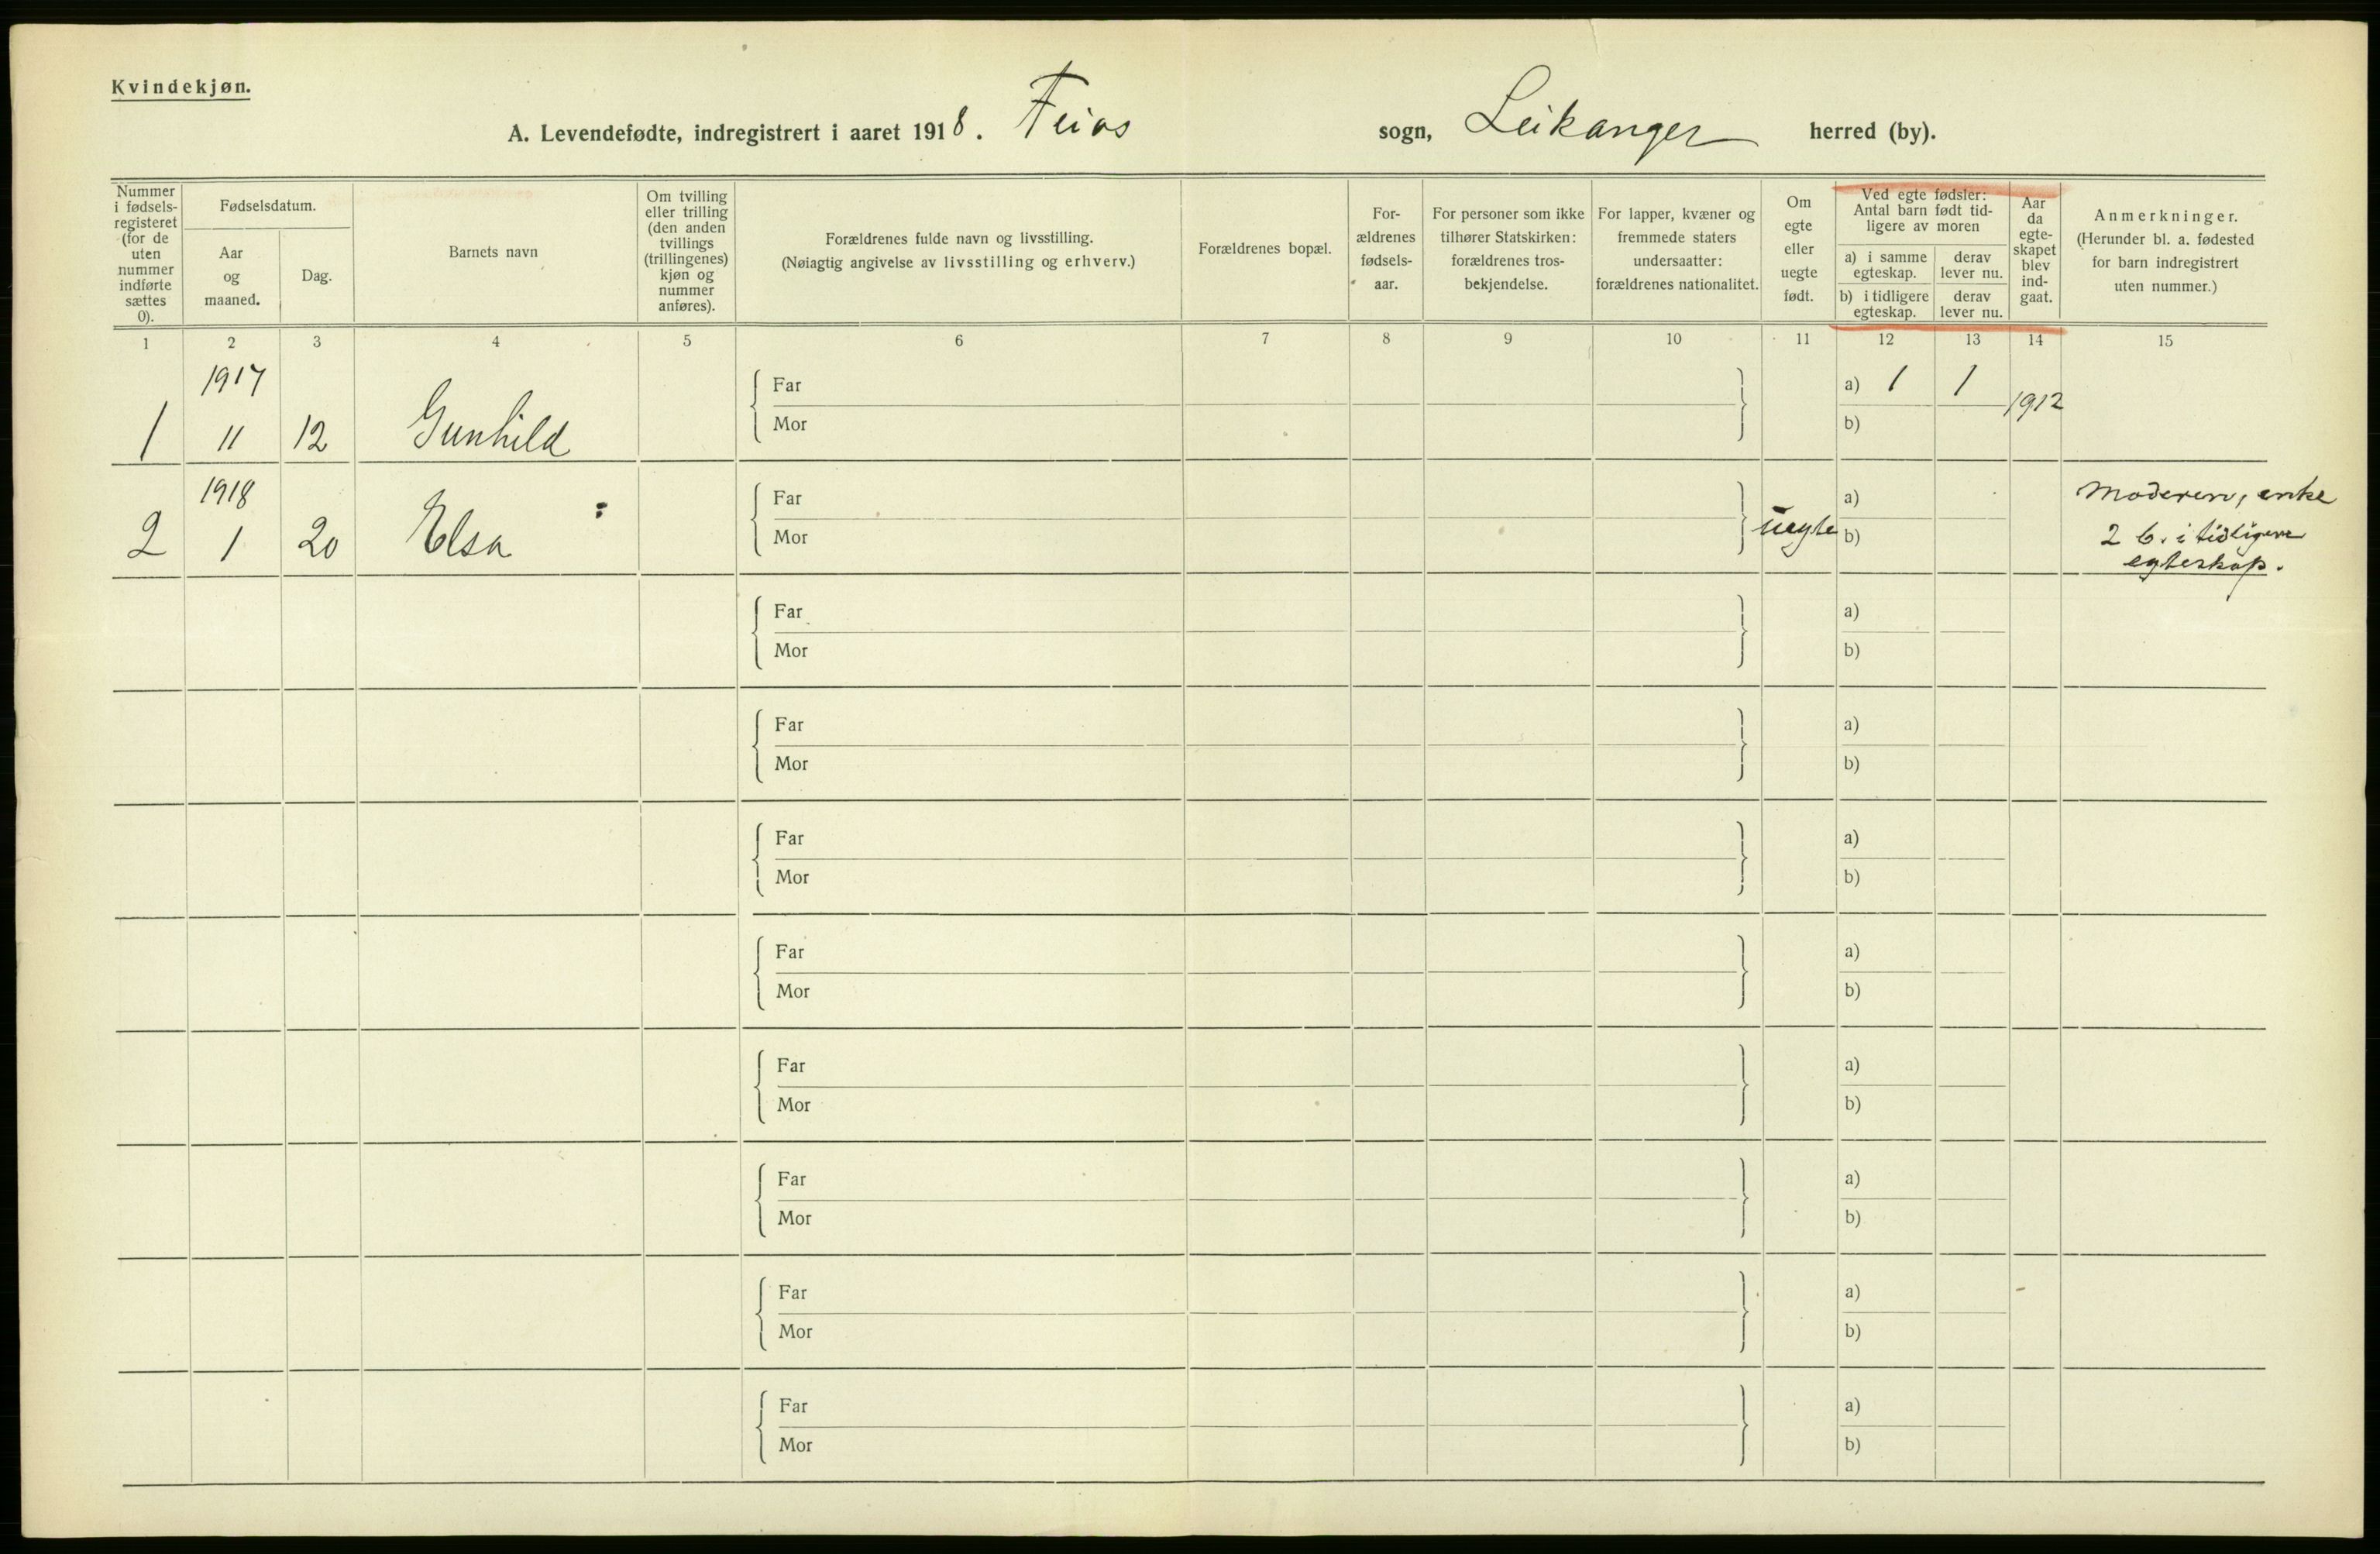 Kvindekjøn.
A. Levendefødte, indregistrert i aaret 1918. Feios sogn, Leikanger herred (by).
Nummer i fødsels-registeret (for de uten nummer indførte sættes 0).
Fødselsdatum.
Aar og maaned.
Dag.
Barnets navn
Om tvilling eller trilling (den anden tvillings (trillingenes) kjøn og nummer anføres).
Forældrenes fulde navn og livsstilling.
(Nøiagtig angivelse av livsstilling og erhverv.)
Forældrenes bopæl.
For-ældrenes fødsels-aar.
For personer som ikke tilhører Statskirken: forældrenes tros-bekjendelse.
For lapper, kvæner og fremmede staters undersaatter: forældrenes nationalitet.
Om egte eller uegte født.
Ved egte fødsler: Antal barn født tid-ligere av moren
a) i samme egteskap.
derav lever nu.
b) i tidligere egteskap.
derav lever nu.
Aar da egte-skapet blev ind-gaat.
Anmerkninger.
(Herunder bl. a. fødested for barn indregistrert uten nummer.)
1 2 3 4 5 6 7 8 9 10 11 12 13 14 15
1917
Far a) 1 1 1912
1 11 12 Gunhild Mor b)
1918
Far a) Moderen, enke
2 1 20 Elsa Mor uegte b) 2 b. i tidligere
egteskap.
Far a)
Mor b)
Far a)
Mor b)
Far a)
Mor b)
Far a)
Mor b)
Far a)
Mor b)
Far a)
Mor b)
Far a)
Mor b)
Far a)
Mor b)